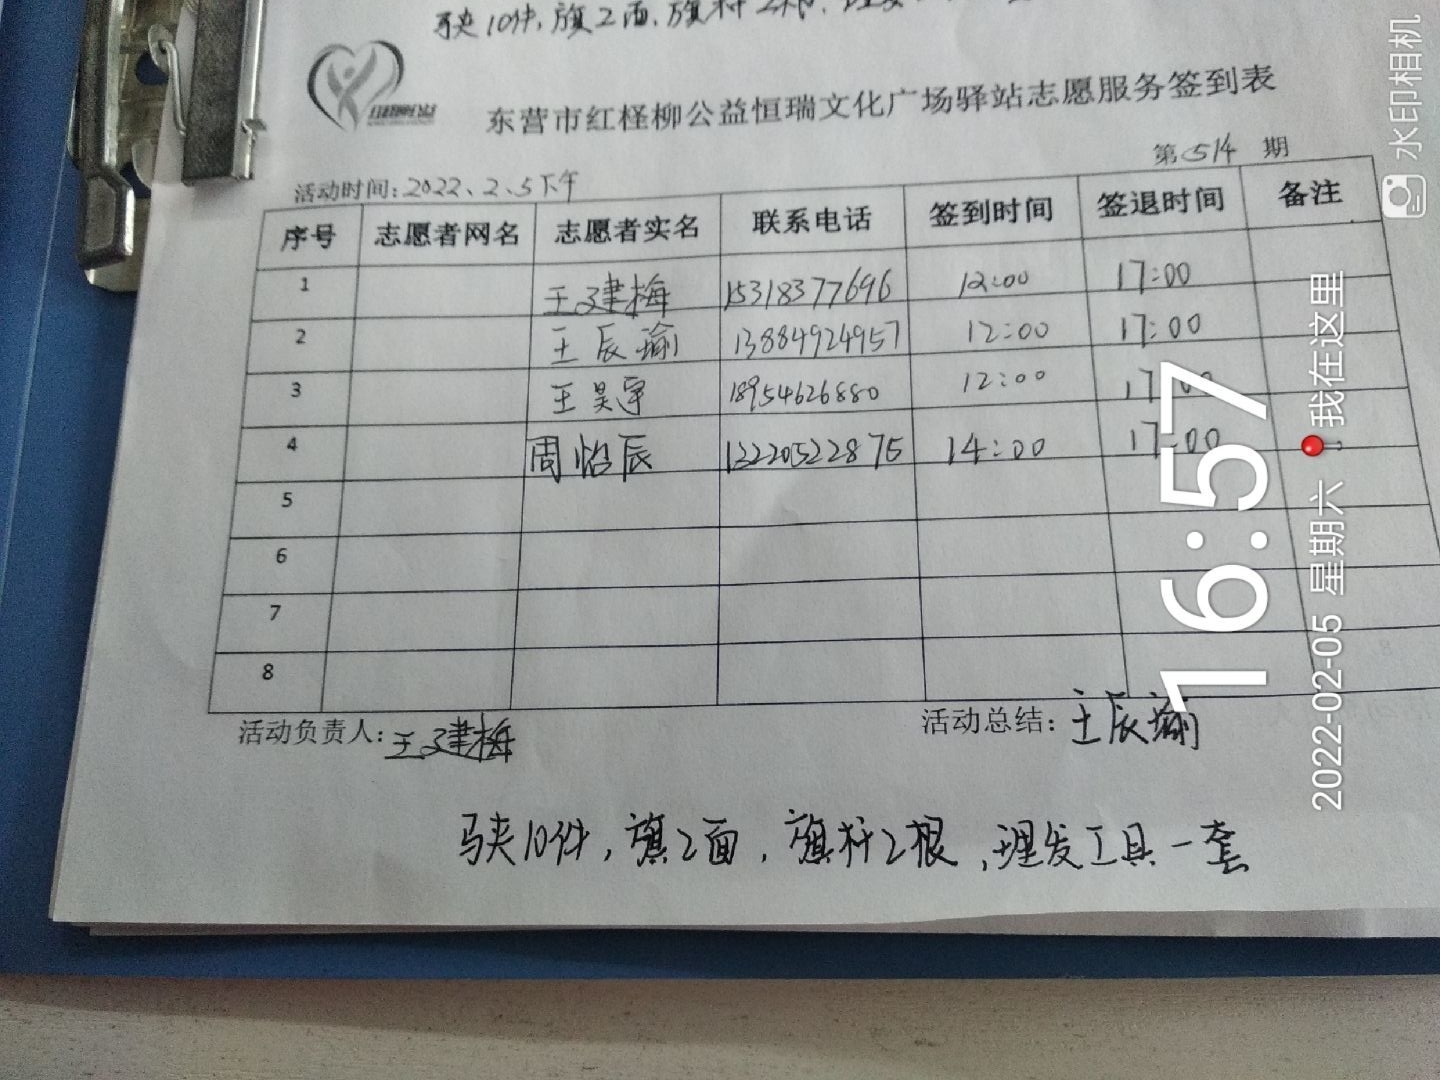 东营市红柽柳公益恒瑞文化广场驿站志愿服务签到表
第 514 期
活动时间:2022.2.5下午
序号 志愿者网名 志愿者实名 联系电话 签到时间 签退时间 备注
1 王建梅 15318377696 12:00 17:00
2 王辰瑜 13884924957 12:00 17:00
3 王昊宇 18954626880 12:00 17:00
4 周怡辰 13220522876 14:00 17:00
5
6
7
8
活动负责人:王建梅 活动总结:王辰瑜
马夹10件,旗2面,旗杆2根,理发工具一套
16:57
2022-02-05 星期六 我在这里
水印相机